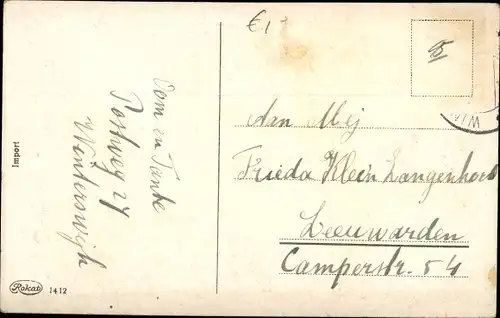 €1
Oom en Tante
Postweg 24
Winterswijk
Aan Mej
Frieda Klein Langenhorst
Leeuwarden
Camperstr. 54
Import
Rokat 1412